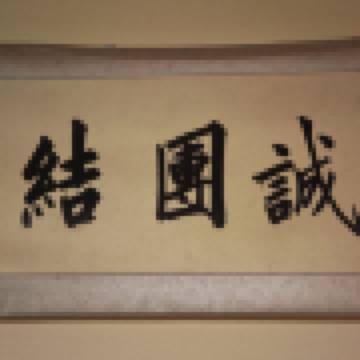 誠團結